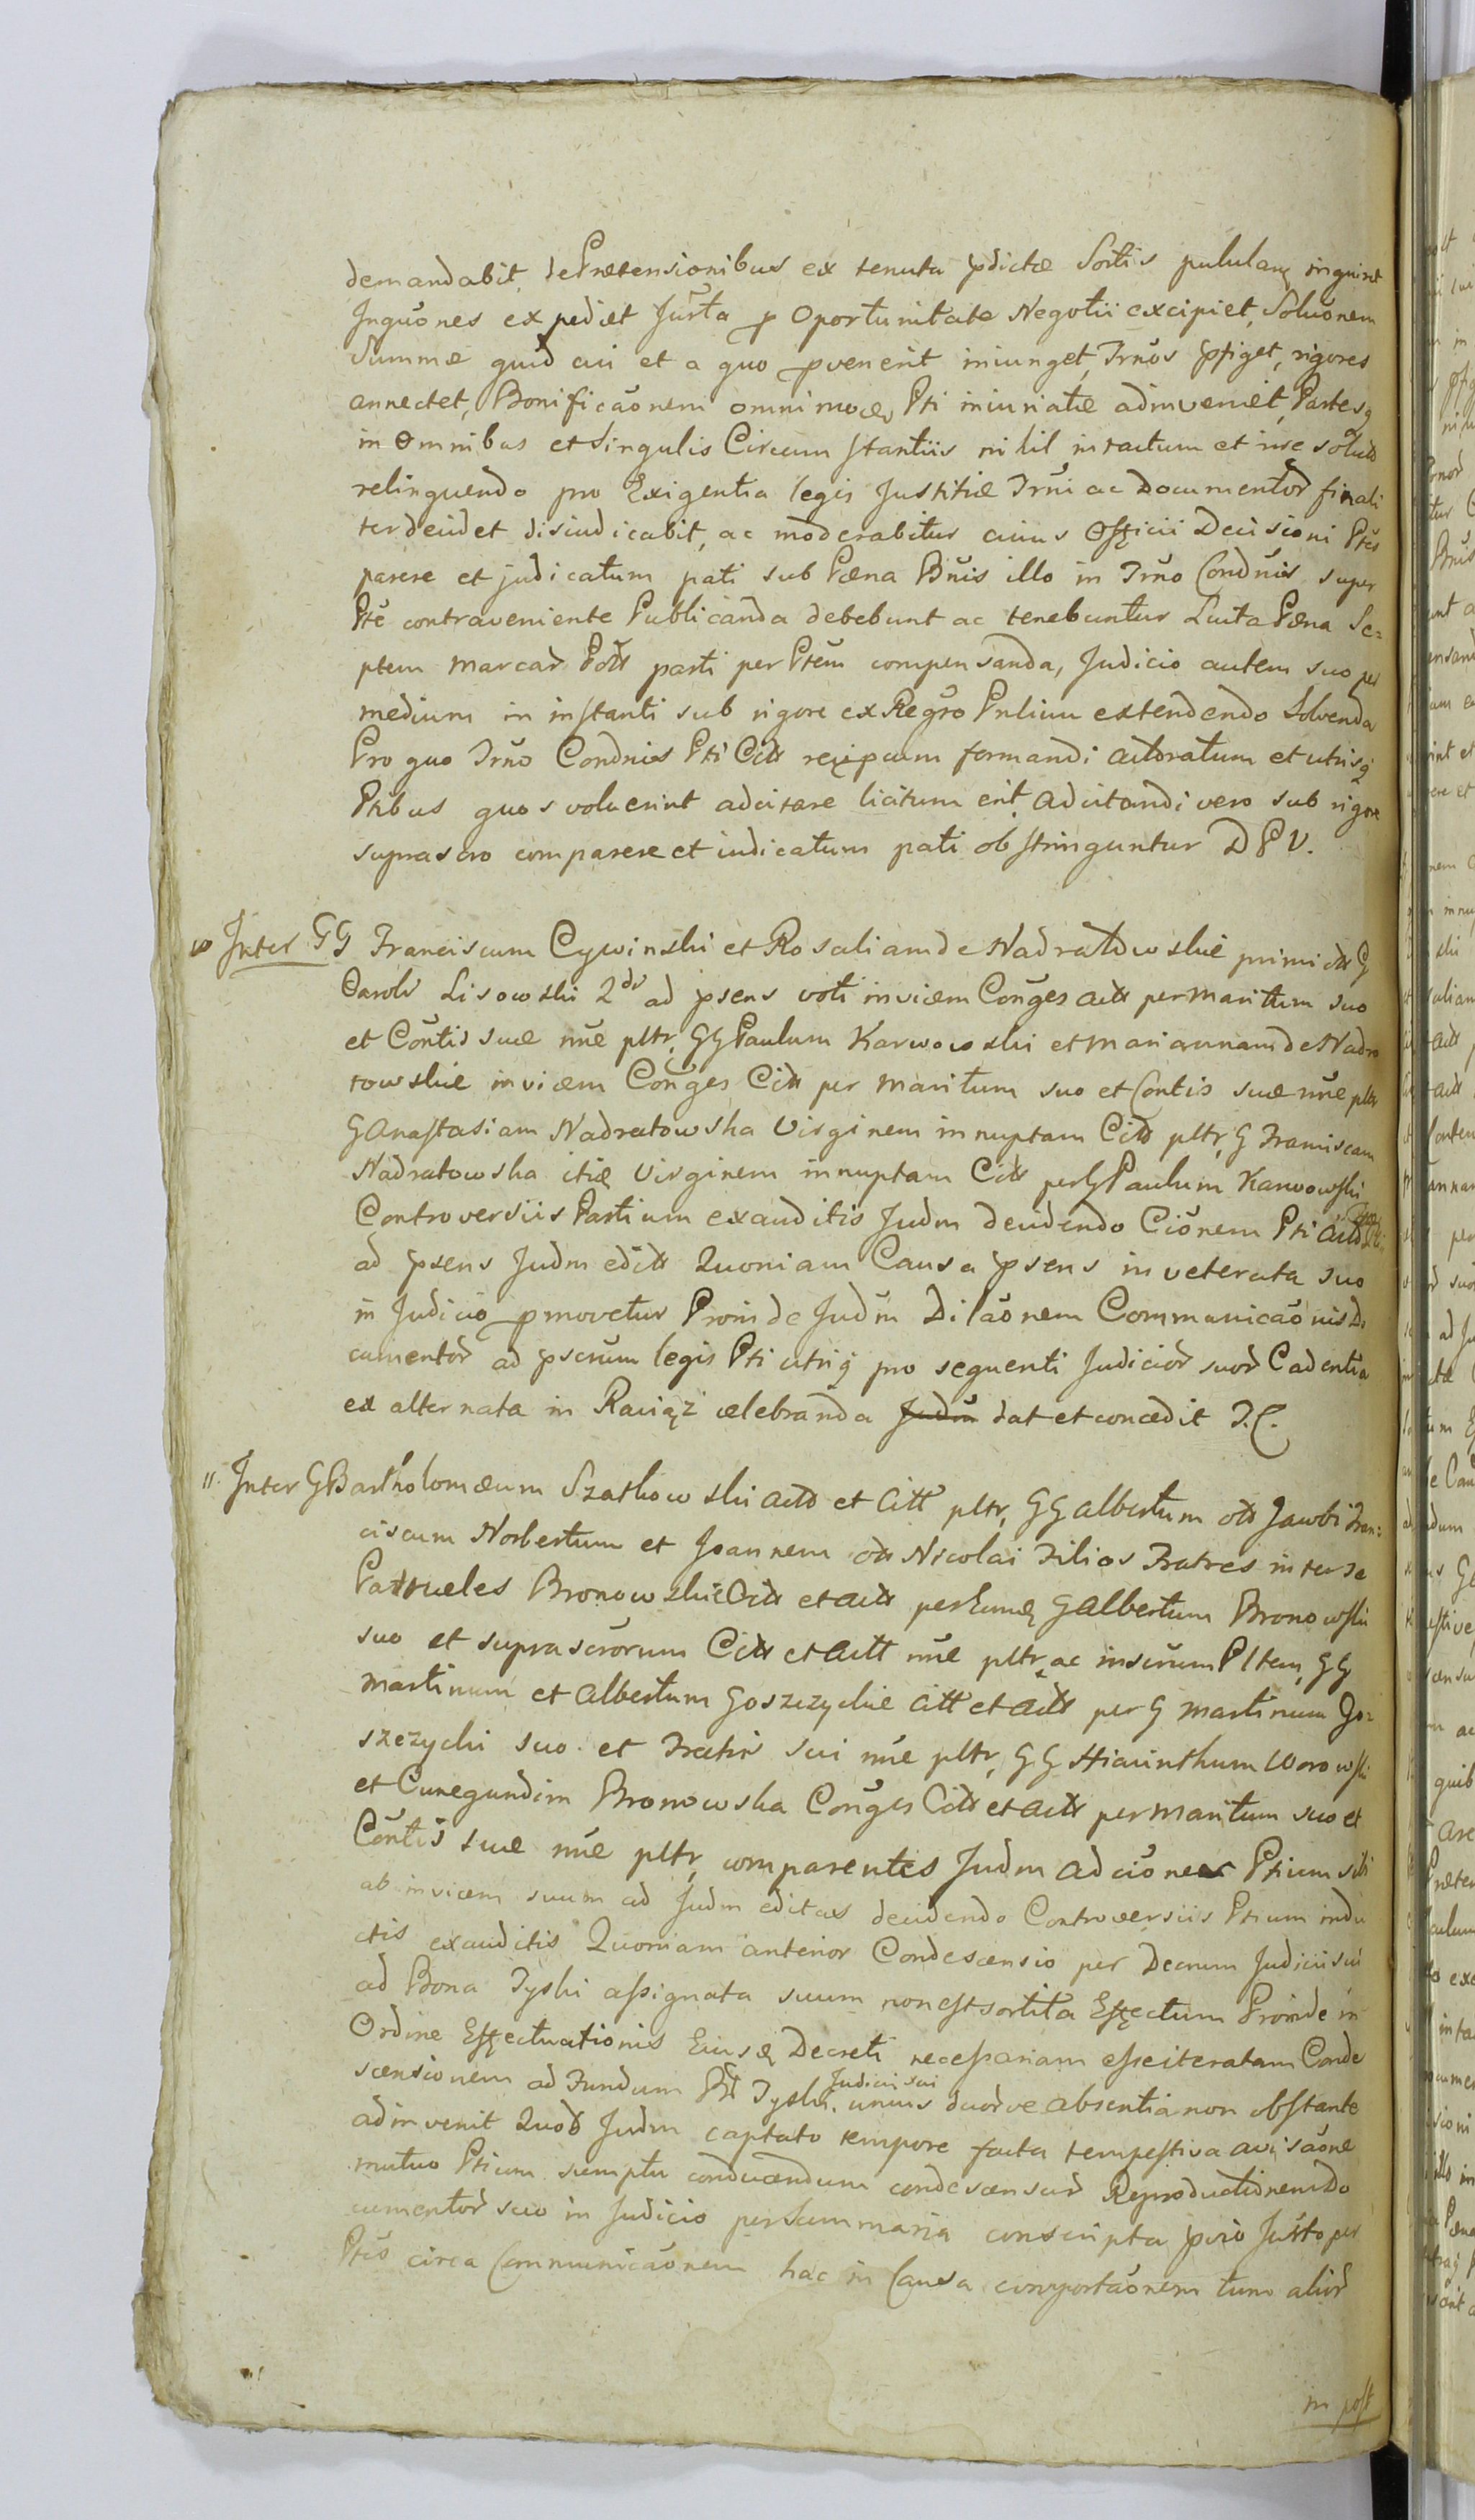 demandabit, de Prætensionibus ex tenuta pdictæ Sortis pululan inquiret
Inquōnes expediet Juxta p Oportunitate Negotii excipiet, Soluōnem
Summæ quid cui et a quo pvenerit iniunget, Trnos pfiget, rigores
annectet, Bonificaōnem omnimodæ Pti iniuriatæ adinveniet, Partesq
in Omnibus et Singulis Circumstantiis nihil intactum et irresolutū
relinquendo pro Exigentia legis Justitiæ Trni ac Documentor finali
ter decidet disiudicabit, ac moderabitur cuius Officii Decisioni Ptes
parere et judicatum pati sub Pæna Bnis illo in Trno Condnis super
Pte contraveniente Publicanda debebunt ac tenebuntur Luita Pæna Se=
ptem marcar Polt parti per Ptem compensanda, Judicio autem suo per
medium in instanti sub rigore ex Regro Pnlium extendendo Solvenda
Pro quo Trno Condnis Pti Citt recipcum formandi actoratum et utrisq
Ptibus quos voluerint adcitare licitum erit adcitandi vero sub rigore
suprascro comparere et iudicatum pati obstringuntur D P V.
10 Inter GG Franciscum Cywinski et Rosaliam de Nadratowskie primi olt G
Caroli Lisowski 2di ad psens voti invicem Conges actt per maritum suo
et Contis suæ nne pltr, GG Paulum Karwowski et Mariannam de Nadra
towskie invicem Conges Citt per Maritum suo et Contis suæ nne pltr
G Anastasiam Nadratowska Virginem innuptam Citt pltr, G Franciscam
Nadratowska itiæ Virginem innuptam Citt per G Paulum Karwowski
Controversiis Partium exauditis Judm decidendo Ciōnem Pti actt
ad psens Judm editt Quoniam Causa psens inveterata suo
in Judicio pmovetur Proinde Judm Dilaōnem Communicaōnis Do
cumentor ad pscrum legis Pti utriq pro sequenti Judicior suor Cadentia
ex alternata in Raciąż celebranda Judm dat et concedit T.C.
11. Inter G Bartholomæum Szatkowski actt et Citt pltr, GG Albertum olt Jacobi Fran=
ciscum Norbertum et Joannem olt Nicolai Filios Fratres inter se
Patrueles Bronowskie Citt et actt per Eund G Albertum Bronowski
suo et suprascrorum Citt et actt nne pltr, ac inscrum Pltem, GG
Martinum et Albertum Goszczyckie Citt et actt per G Martinum Go=
szczycki suo et Fratris sui nne pltr, GG Hiacinthum Worowski
et Cunegundim Bronowska Conges Citt et actt per Maritum suo et
Contis suæ nne pltr, comparentes Judm ad ciōnes Ptium sibi
ab invicem suum ad Judm editas decidendo Controversiis Ptium indu
ctis exauditis Quoniam anterior Condescensio per Decrum Judicii sui
ad Bona Tyski assignata suum non est sortita Effectum Proinde in
Ordine Effectuationis Eiusd Decreti necessariam esse iteratam Conde
scensionem ad Fundum Bor Tyski Judicii sui unius duorve absentia non obstante
adinvenit Quod Judm captato tempore facta tempestiva avisaōne
mutuo Ptium sumptu conducendum condescensur Reproductionem Do
cumentor suo in Judicio per Summaria conscripta pvio Jurto per
Ptes circa Communicaōnem hac in Causa comportaōnem tum alior
in post